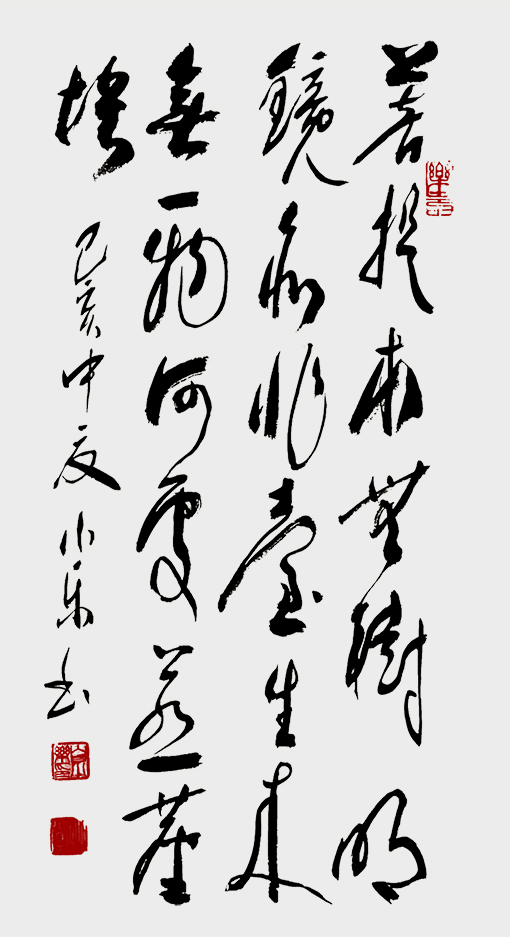 菩提本無樹明
鏡亦非臺生来
無一物何處惹塵
埃
己亥中夏小乐书